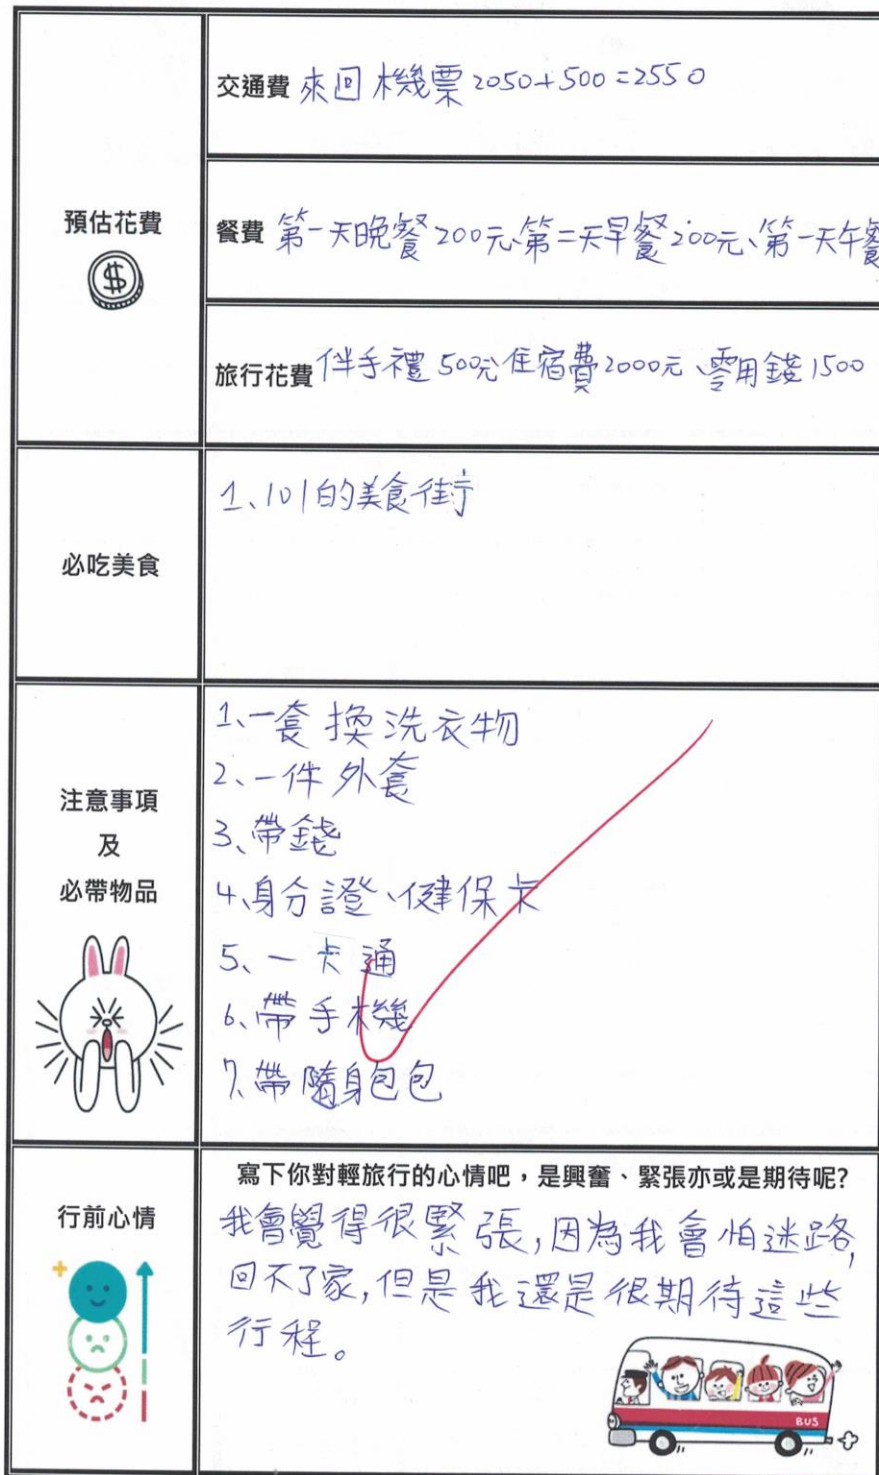 預估花費
交通費 來回機票2050+500=2550
餐費 第一天晚餐200元、第二天早餐200元、第一天午餐
旅行花費 伴手禮500元住宿費2000元、零用錢1500
必吃美食
1、101的美食街
注意事項
及
必帶物品
1、一套換洗衣物
2、一件外套
3、帶錢
4、身分證、健保卡
5、一卡通
6、帶手機
7、帶隨身包包
行前心情
寫下你對輕旅行的心情吧，是興奮、緊張亦或是期待呢?
我會覺得很緊張,因為我會怕迷路,
回不了家,但是我還是很期待這些
行程。
BUS